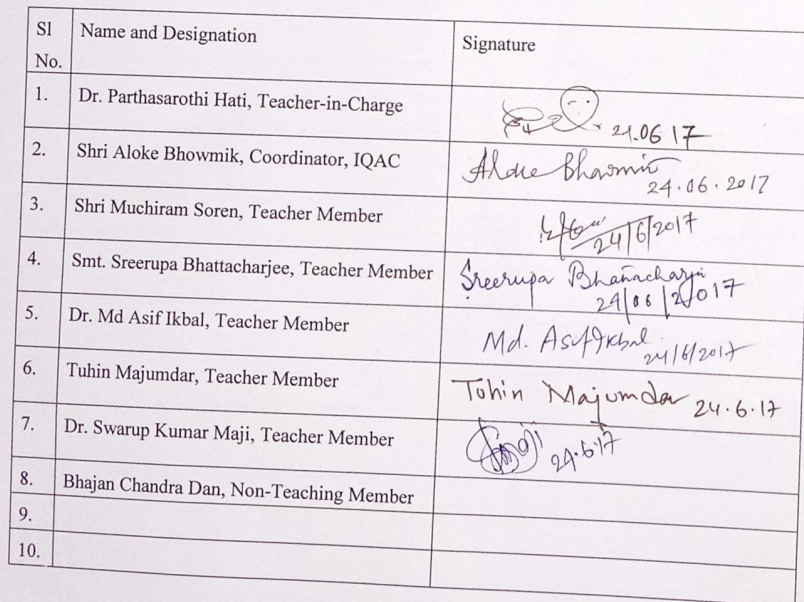 Sl No. Name and Designation Signature
1. Dr. Parthasarothi Hati, Teacher-in-Charge 21.06 17
2. Shri Aloke Bhowmik, Coordinator, IQAC Aloke Bhowmik 24.06.2017
3. Shri Muchiram Soren, Teacher Member 24/6/2017
4. Smt. Sreerupa Bhattacharjee, Teacher Member Sreerupa Bhattacharjee 24/06/2017
5. Dr. Md Asif Ikbal, Teacher Member Md. Asif Ikbal 24/6/2017
6. Tuhin Majumdar, Teacher Member Tuhin Majumdar 24.6.17
7. Dr. Swarup Kumar Maji, Teacher Member 24.6.17
8. Bhajan Chandra Dan, Non-Teaching Member
9.
10.